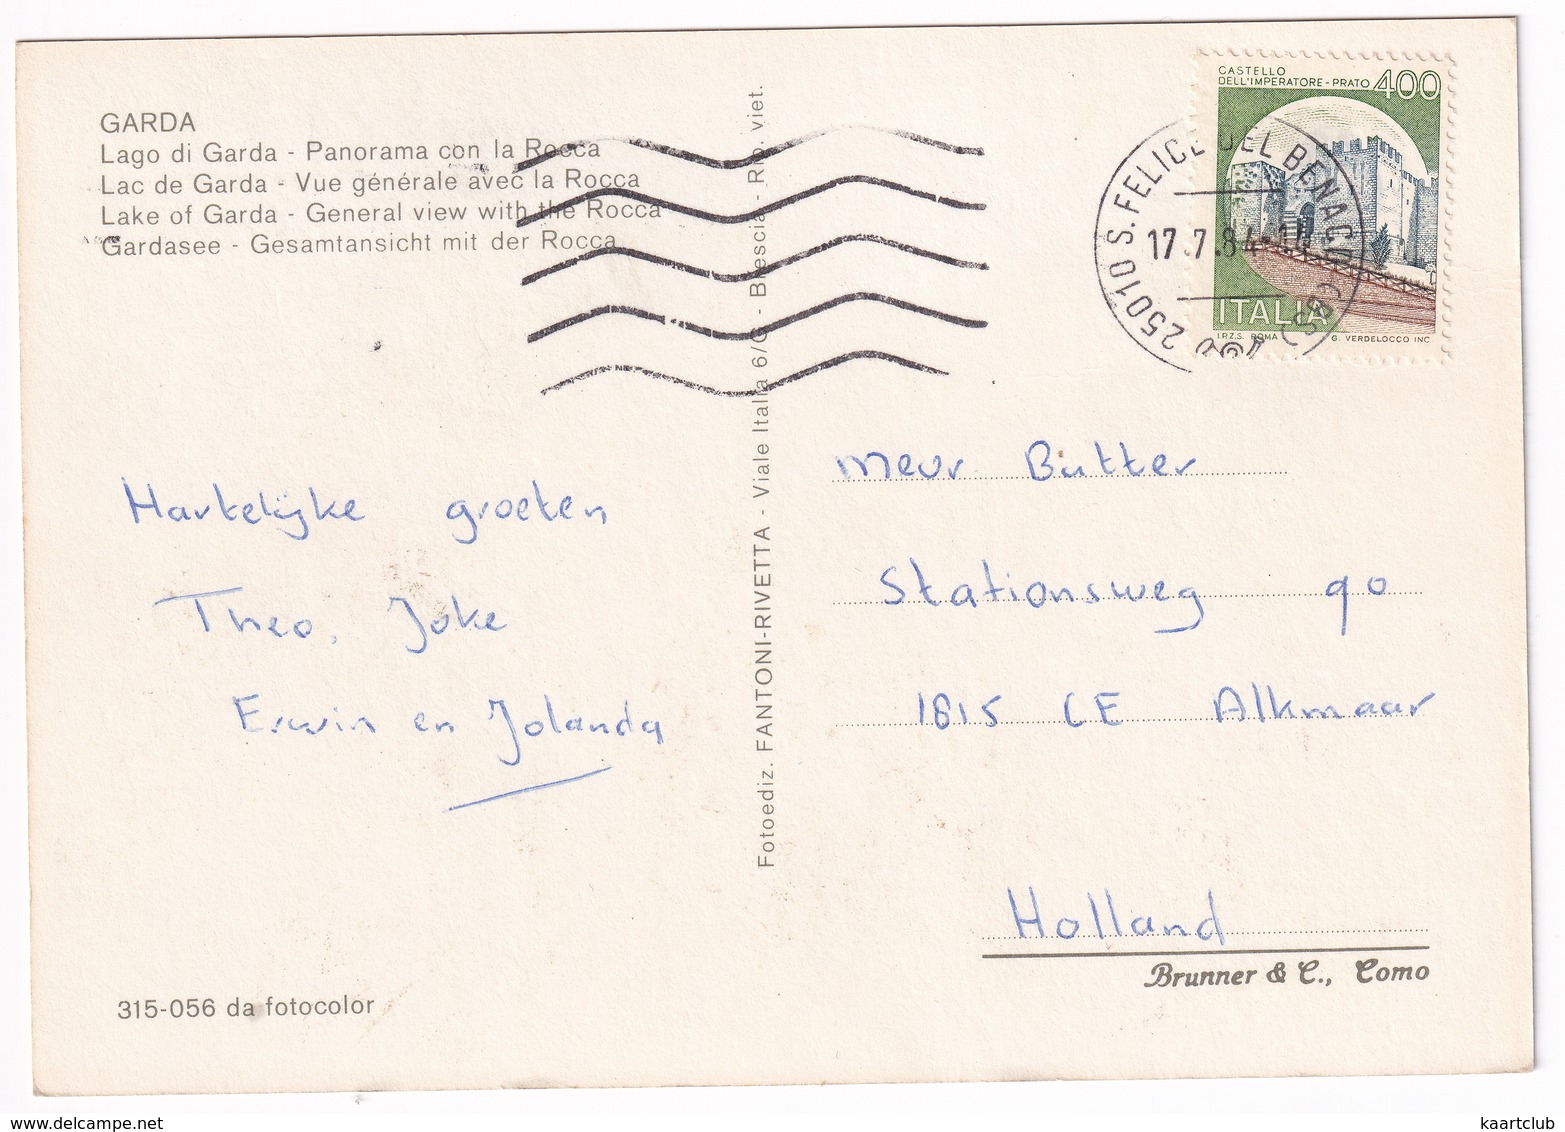 GARDA
Lago di Garda - Panorama con la Rocca
Lac de Garda - Vue générale avec la Rocca
Lake of Garda - General view with the Rocca
Gardasee - Gesamtansicht mit der Rocca
Hartelijke groeten
Theo, Joke
Erwin en Jolanda
315-056 da fotocolor
Fotoediz. FANTONI-RIVETTA - Viale Italia 6/C - Brescia - Rip. viet.
CASTELLO
DELL'IMPERATORE - PRATO 400
ITALIA
I.P.Z.S. ROMA G. VERDELOCCO INC
25010 S. FELICE DEL BENACO (BS)
17.7.84-14
Mevr. Butter
Stationsweg 90
1815 CE Alkmaar
Holland
Brunner & C., Como
kaartclub